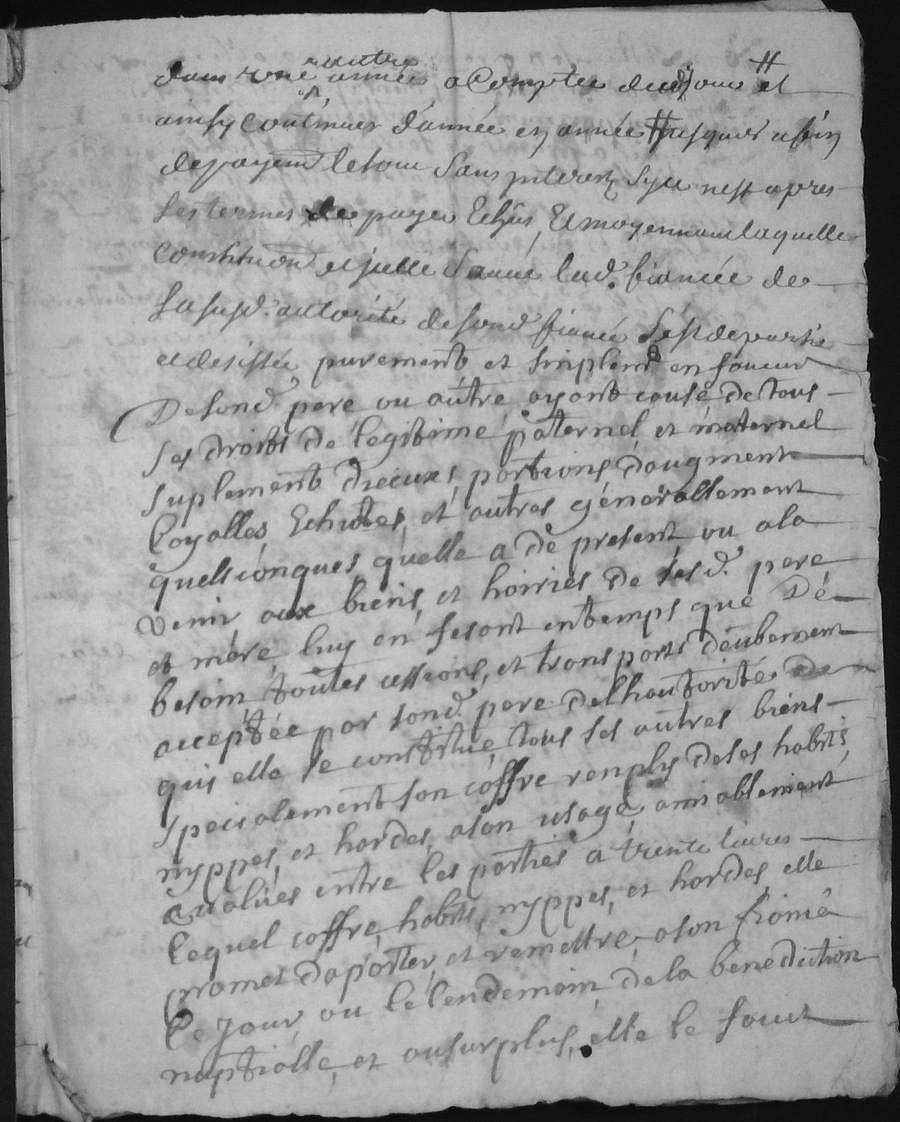 dans une autre année a compter dud jour et
ainsy continuer d'année en année jusques a fin
de payem le tout sans interest sy ce nest apres
les termes de payer Echus, Et moyennant laquelle
constitution et jcelle sauue lad. fiancée de
la susd. autorité de sond fiancé s'est departie
et desistée purement et simplem en faueur
De sond. pere ou autre ayant cause de tous
ses droits de legitime paternel et maternel
suplement diceux, portions daugment
Coyalles Echutes, et autres génerallement
quelsconques quelle a de present ou a la
venir aux biens, et hoiries de sesd. pere
et mere, luy en fesant entemps que Dé
besoin toutes cessions, et transports deubement
acceptée par sond. pere de lhautorité de
qui elle se constitue tous ses autres biens
specialement son coffre remply de ses habits,
nyppes, et hardes, a son usage, amiablement
aualués entre les parties a trente liures
lequel coffre, habits, nyppes, et hardes, elle
promet daporter, et remettre, a son fiancé
le Jour, ou le lendemain, de la benediction
nuptialle, et ausurplus, elle le